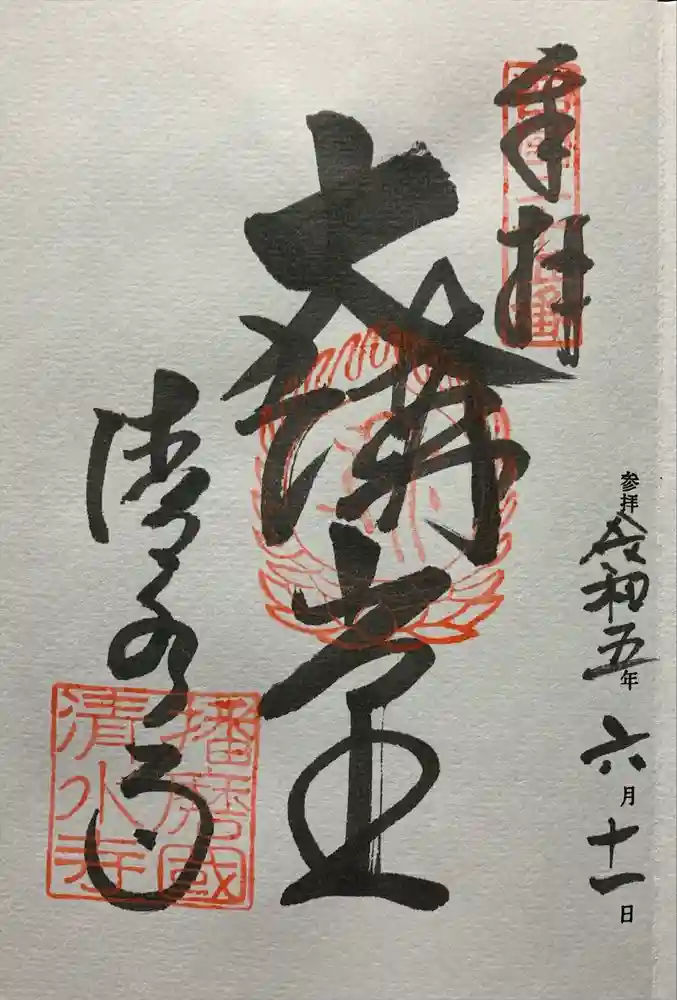 参拝 令和五年 六月 十一日
奉拝
大講堂
清水寺
播磨國
清水寺